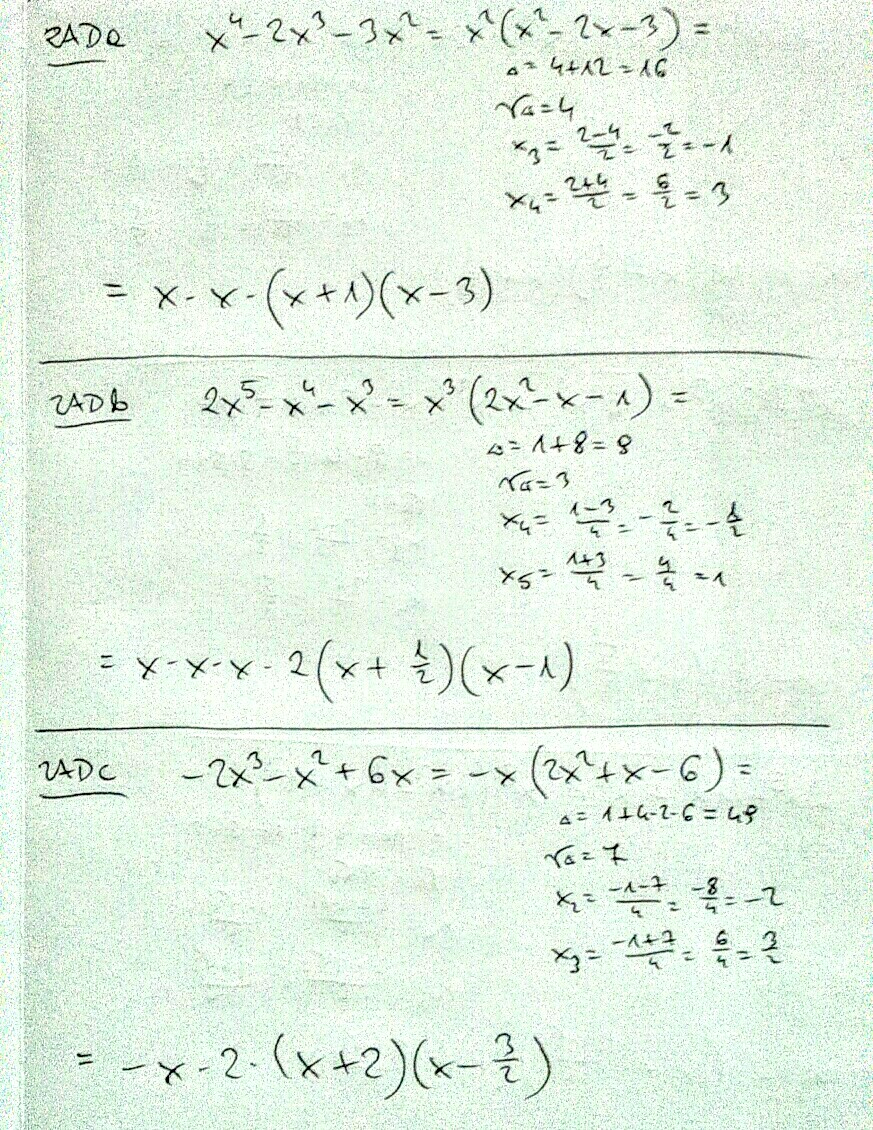 ZADa x⁴-2x³-3x² = x²(x²-2x-3) =
Δ = 4+12 = 16
√Δ = 4
x₃ = (2-4)/2 = -2/2 = -1
x₄ = (2+4)/2 = 6/2 = 3
= x·x·(x+1)(x-3)
ZADb 2x⁵-x⁴-x³ = x³(2x²-x-1) =
Δ = 1+8 = 9
√Δ = 3
x₄ = (1-3)/4 = -2/4 = -1/2
x₅ = (1+3)/4 = 4/4 = 1
= x·x·x·2(x+1/2)(x-1)
ZADc -2x³-x²+6x = -x(2x²+x-6) =
Δ = 1+4·2·6 = 49
√Δ = 7
x₂ = (-1-7)/4 = -8/4 = -2
x₃ = (-1+7)/4 = 6/4 = 3/2
= -x·2·(x+2)(x-3/2)